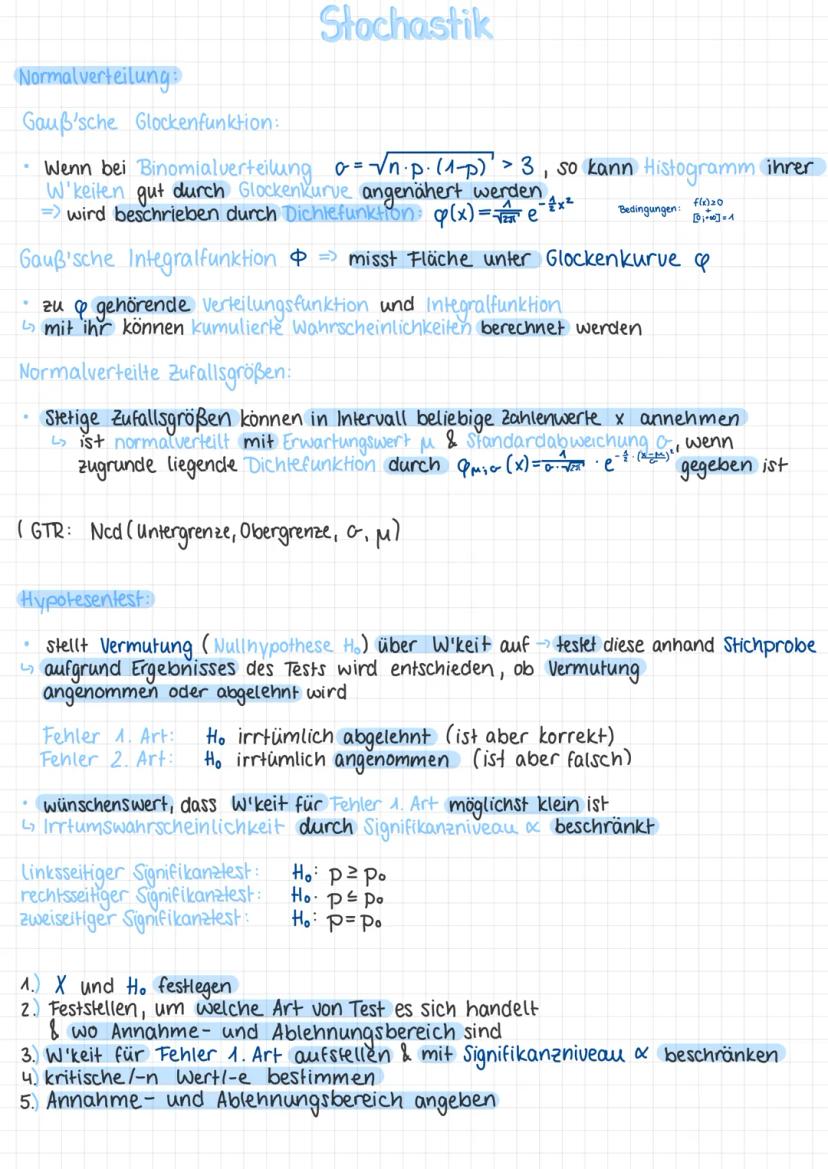 Stochastik
Normalverteilung:
Gauß'sche Glockenfunktion:
• Wenn bei Binomialverteilung σ = √n·p·(1-p) > 3, so kann Histogramm ihrer
W'keiten gut durch Glockenkurve angenähert werden
=> wird beschrieben durch Dichtefunktion: φ(x) = 1/√2π e^-1/2x² Bedingungen: f(x)≥0
+
[0;+∞]=1
Gauß'sche Integralfunktion Φ => misst Fläche unter Glockenkurve φ
• zu φ gehörende Verteilungsfunktion und Integralfunktion
↳ mit ihr können kumulierte Wahrscheinlichkeiten berechnet werden
Normalverteilte Zufallsgrößen:
• Stetige Zufallsgrößen können in Intervall beliebige Zahlenwerte x annehmen
↳ ist normalverteilt mit Erwartungswert μ & Standardabweichung σ, wenn
zugrunde liegende Dichtefunktion durch φμ;σ (x) = 1/σ·√2π · e^-1/2·(x-μ/σ)² gegeben ist
( GTR: Ncd (Untergrenze, Obergrenze, σ, μ)
Hypotesentest:
• stellt Vermutung (Nullhypothese H₀) über W'keit auf → testet diese anhand Stichprobe
↳ aufgrund Ergebnisses des Tests wird entschieden, ob Vermutung
angenommen oder abgelehnt wird
Fehler 1. Art: H₀ irrtümlich abgelehnt (ist aber korrekt)
Fehler 2. Art: H₀ irrtümlich angenommen (ist aber falsch)
• wünschenswert, dass W'keit für Fehler 1. Art möglichst klein ist
↳ Irrtumswahrscheinlichkeit durch Signifikanzniveau α beschränkt
linksseitiger Signifikanztest: H₀: p ≥ p₀
rechtsseitiger Signifikanztest: H₀: p ≤ p₀
zweiseitiger Signifikanztest: H₀: p = p₀
1.) X und H₀ festlegen
2.) Feststellen, um welche Art von Test es sich handelt
& wo Annahme- und Ablehnungsbereich sind
3.) W'keit für Fehler 1. Art aufstellen & mit Signifikanzniveau α beschränken
4.) kritische/-n Wert/-e bestimmen
5.) Annahme- und Ablehnungsbereich angeben